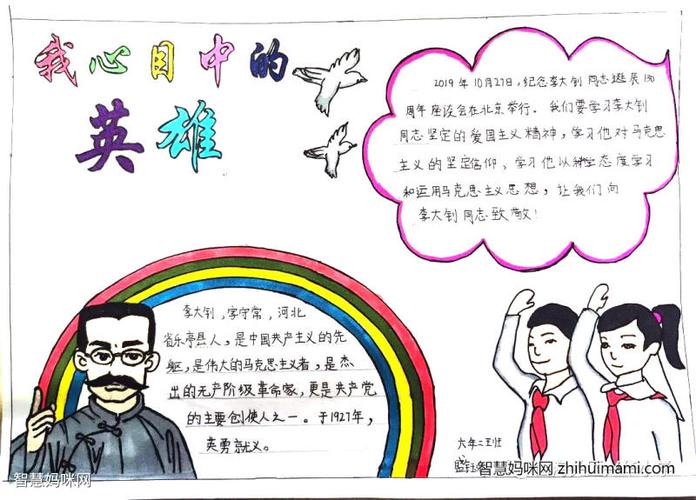 我心目中的
英雄
2019年10月27日，纪念李大钊同志诞辰130
周年座谈会在北京举行。我们要学习李大钊
同志坚定的爱国主义精神，学习他对马克思
主义的坚定信仰，学习他以科学态度学习
和运用马克思主义思想，让我们向
李大钊同志致敬！
李大钊，字守常，河北
省乐亭县人，是中国共产主义的先
驱，是伟大的马克思主义者，是杰
出的无产阶级革命家，更是共产党
的主要创使人之一。于1927年，
英勇就义。
六年二班
智慧妈咪网
智慧妈咪网 zhihuimami.com